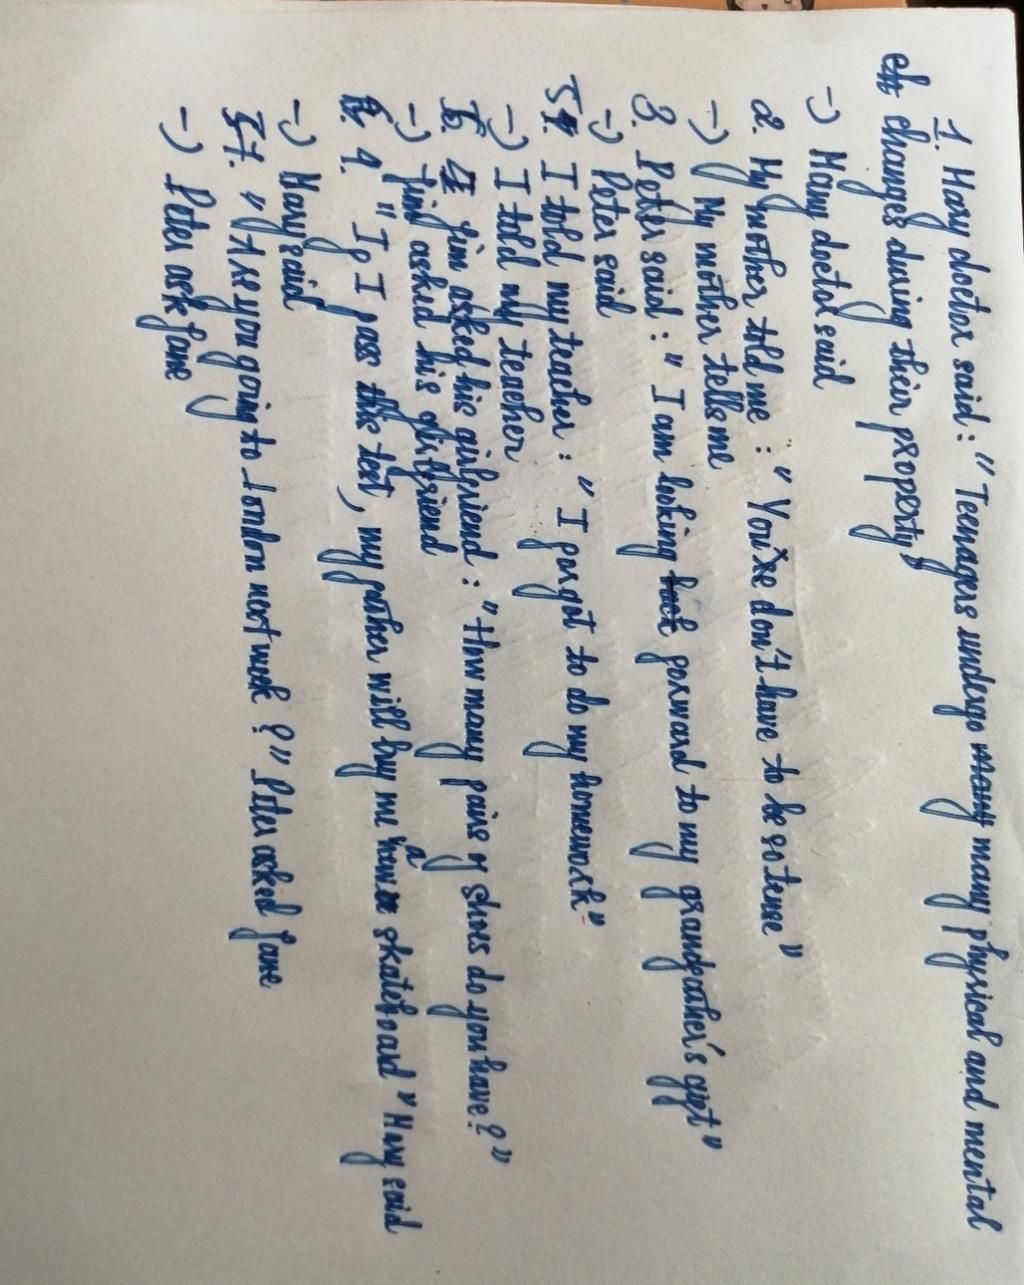 1. Mary doctor said: "Teenagers undergo many many physical and mental
changes during their property"
-) Mary doctor said
2. My mother told me : "You're don't have to be so tense"
-) My mother tells me
3. Peter said : " I am looking back forward to my grandfather's gift"
-) Peter said
I told my teacher : " I forgot to do my homework"
-) I told my teacher
Jim asked his girlfriend : "How many pairs of shoes do you have ?"
-) Jim asked his girlfriend
"If I pass this test, my father will buy me a skateboard "Mary said
-) Mary said
7. "Are you going to London next week ?" Peter asked Jane
-) Peter ask Jane